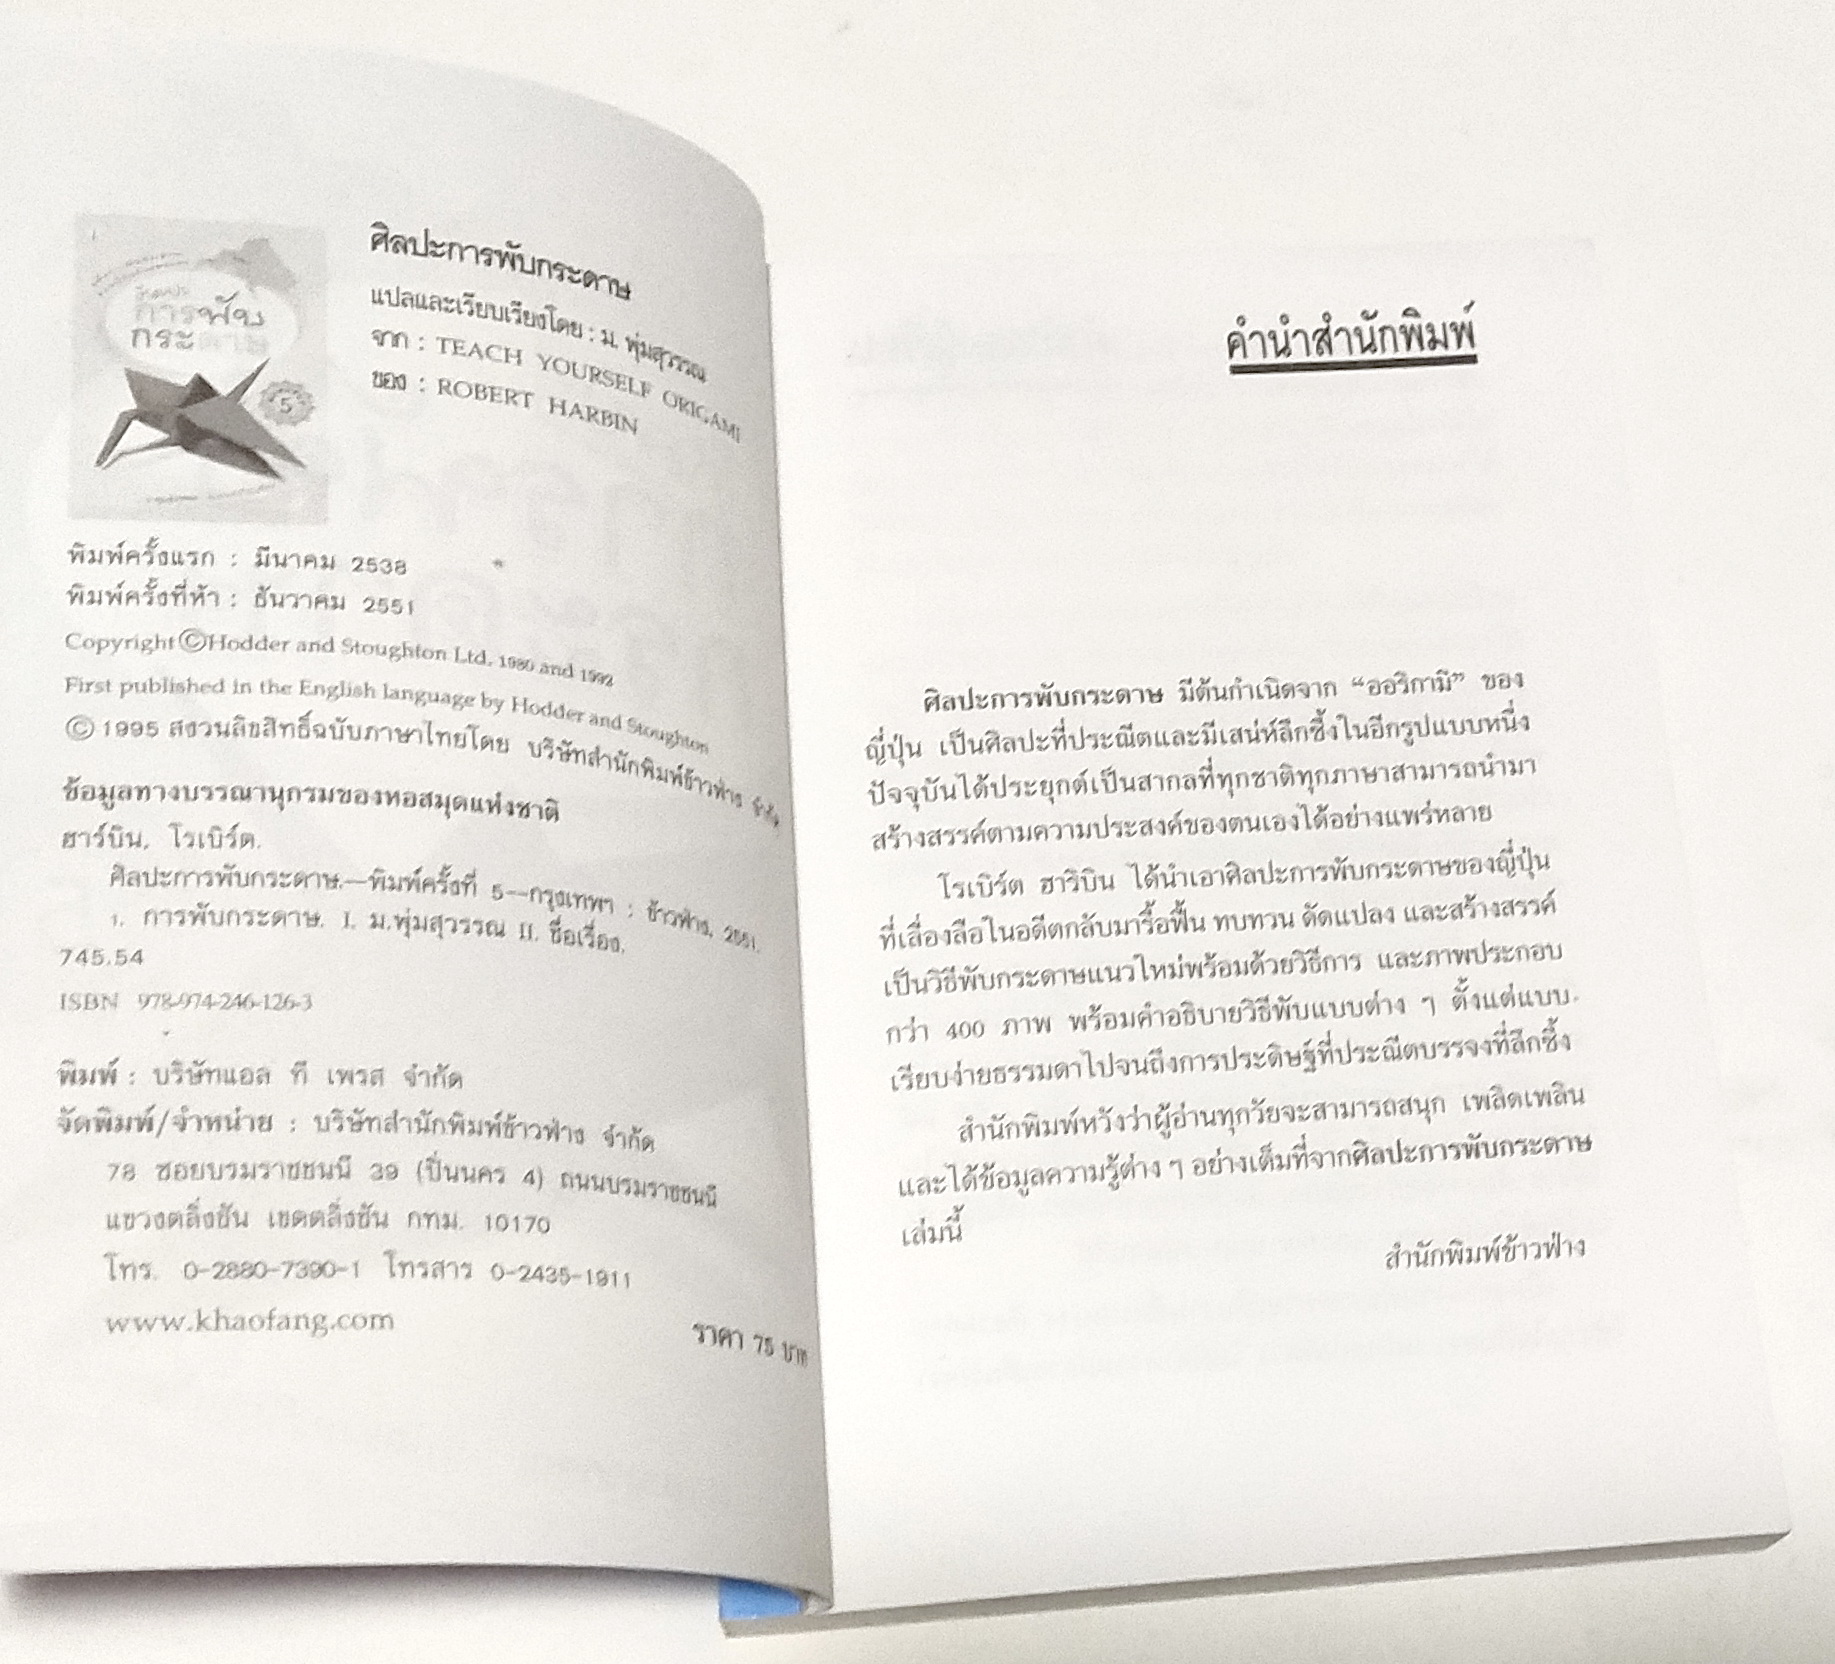 การพับ
กระดาษ
5
ศิลปะการพับกระดาษ
แปลและเรียบเรียงโดย : ม. พุ่มสุวรรณ
จาก : TEACH YOURSELF ORIGAMI
ของ : ROBERT HARBIN
พิมพ์ครั้งแรก : มีนาคม 2538
พิมพ์ครั้งที่ห้า : ธันวาคม 2551
Copyright © Hodder and Stoughton Ltd, 1980 and 1992
First published in the English language by Hodder and Stoughton
© 1995 สงวนลิขสิทธิ์ฉบับภาษาไทยโดย บริษัทสำนักพิมพ์ข้าวฟ่าง จำกัด
ข้อมูลทางบรรณานุกรมของหอสมุดแห่งชาติ
ฮาร์บิน, โรเบิร์ต.
ศิลปะการพับกระดาษ.—พิมพ์ครั้งที่ 5--กรุงเทพฯ : ข้าวฟ่าง, 2551.
1. การพับกระดาษ. I. ม.พุ่มสุวรรณ II. ชื่อเรื่อง.
745.54
ISBN 978-974-246-126-3
พิมพ์ : บริษัทแอล ที เพรส จำกัด
จัดพิมพ์/จำหน่าย : บริษัทสำนักพิมพ์ข้าวฟ่าง จำกัด
78 ซอยบรมราชชนนี 39 (ปิ่นนคร 4) ถนนบรมราชชนนี
แขวงตลิ่งชัน เขตตลิ่งชัน กทม. 10170
โทร. 0-2880-7390-1 โทรสาร 0-2435-1911
www.khaofang.com
ราคา 75 บาท
คำนำสำนักพิมพ์
ศิลปะการพับกระดาษ มีต้นกำเนิดจาก “ออริกามิ” ของ
ญี่ปุ่น เป็นศิลปะที่ประณีตและมีเสน่ห์ลึกซึ้งในอีกรูปแบบหนึ่ง
ปัจจุบันได้ประยุกต์เป็นสากลที่ทุกชาติทุกภาษาสามารถนำมา
สร้างสรรค์ตามความประสงค์ของตนเองได้อย่างแพร่หลาย
โรเบิร์ต ฮาริบิน ได้นำเอาศิลปะการพับกระดาษของญี่ปุ่น
ที่เลื่องลือในอดีตกลับมารื้อฟื้น ทบทวน ดัดแปลง และสร้างสรรค์
เป็นวิธีพับกระดาษแนวใหม่พร้อมด้วยวิธีการ และภาพประกอบ
กว่า 400 ภาพ พร้อมคำอธิบายวิธีพับแบบต่าง ๆ ตั้งแต่แบบ
เรียบง่ายธรรมดาไปจนถึงการประดิษฐ์ที่ประณีตบรรจงที่ลึกซึ้ง
สำนักพิมพ์หวังว่าผู้อ่านทุกวัยจะสามารถสนุก เพลิดเพลิน
และได้ข้อมูลความรู้ต่าง ๆ อย่างเต็มที่จากศิลปะการพับกระดาษ
เล่มนี้
สำนักพิมพ์ข้าวฟ่าง